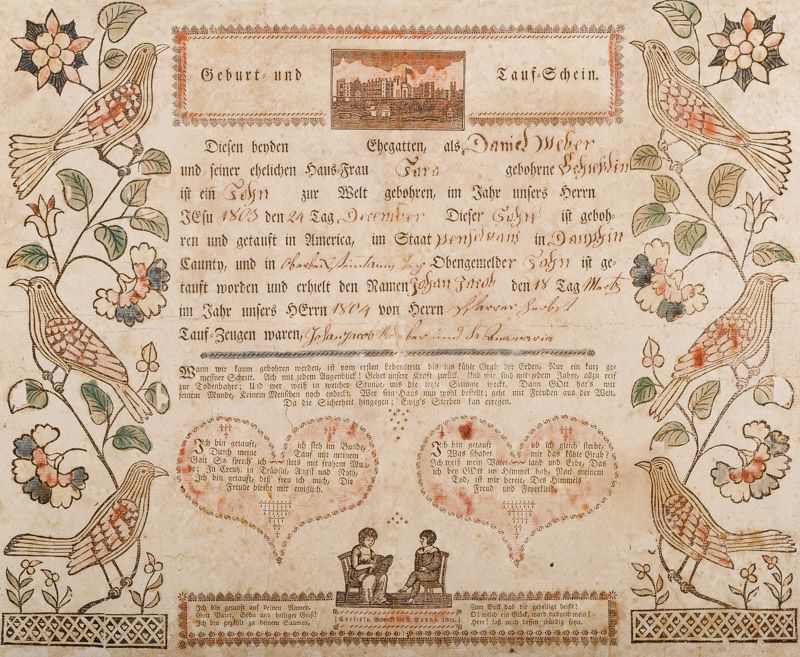 Geburt- und
Tauf-Schein.
Diesen beyden Ehegatten, als Daniel Weber
und seiner ehelichen Haus-Frau Sara gebohrne
ist ein Sohn zur Welt gebohren, im Jahr unsers Herrn
JEsu 1803 den 24 Tag December Dieser Sohn ist geboh-
ren und getauft in America, im Staat in Dauphin
Caunty, und in Obengemelder Sohn ist ge-
tauft worden und erhielt den Namen Johan Jacob den 18 Tag Mertz
im Jahr unsers HErrn 1804 von Herrn Pfarrer Herbst
Tauf-Zeugen waren, Johan Jacob Weber und
Wann wir kaum gebohren werden, ist vom ersten Lebenstritt bis ins kühle Grab der Erden, Nur ein kurz ge-
meßner Schritt. Ach mit jedem Augenblick! Gehet unsre Kraft zurück. Und wir sind mit jedem Jahre, allzu reif
zur Todenbahre; Und wer weiß in welcher Stunde, uns die letzte Stimme weckt. Dann GOtt hat's mit
seinem Munde, Keinem Menschen noch endeckt. Wer sein Haus nun wohl bestellt; geht mit Freuden aus der Welt.
Da die Sicherheit hingegen; Ewig's Sterben kan erregen.
Ich bin getauft, ich steh im Bunde,
Durch meine Tauf mit meinem
Gott So sprech' ich stets mit frohem Mun-
de; In Creuz, in Trübsal, Angst und Noth,
Ich bin getauft, deß' freu ich mich, Die
Freude bleibt mir ewiglich.
Ich bin getauft, ob ich gleich sterbe,
Was schadet mir das kühle Grab?
Ich weiß mein Vaterland und Erbe, Das
ich bey GOtt im Himmel hab, Nach meinem
Tod, ist mir bereit, Des Himmels
Freud und Feyerkleid.
Ich bin getauft auf deinen Namen,
Gott Vater, Sohn und heiliger Geist!
Ich bin gezählt zu deinem Saamen,
Carlisle, Gedruckt bey F. Sanno. 1802.
Zum Volk das dir geheiligt heißt!
O! welch ein Glück, ward dadurch mein!
Herr! laß mich dessen würdig seyn.